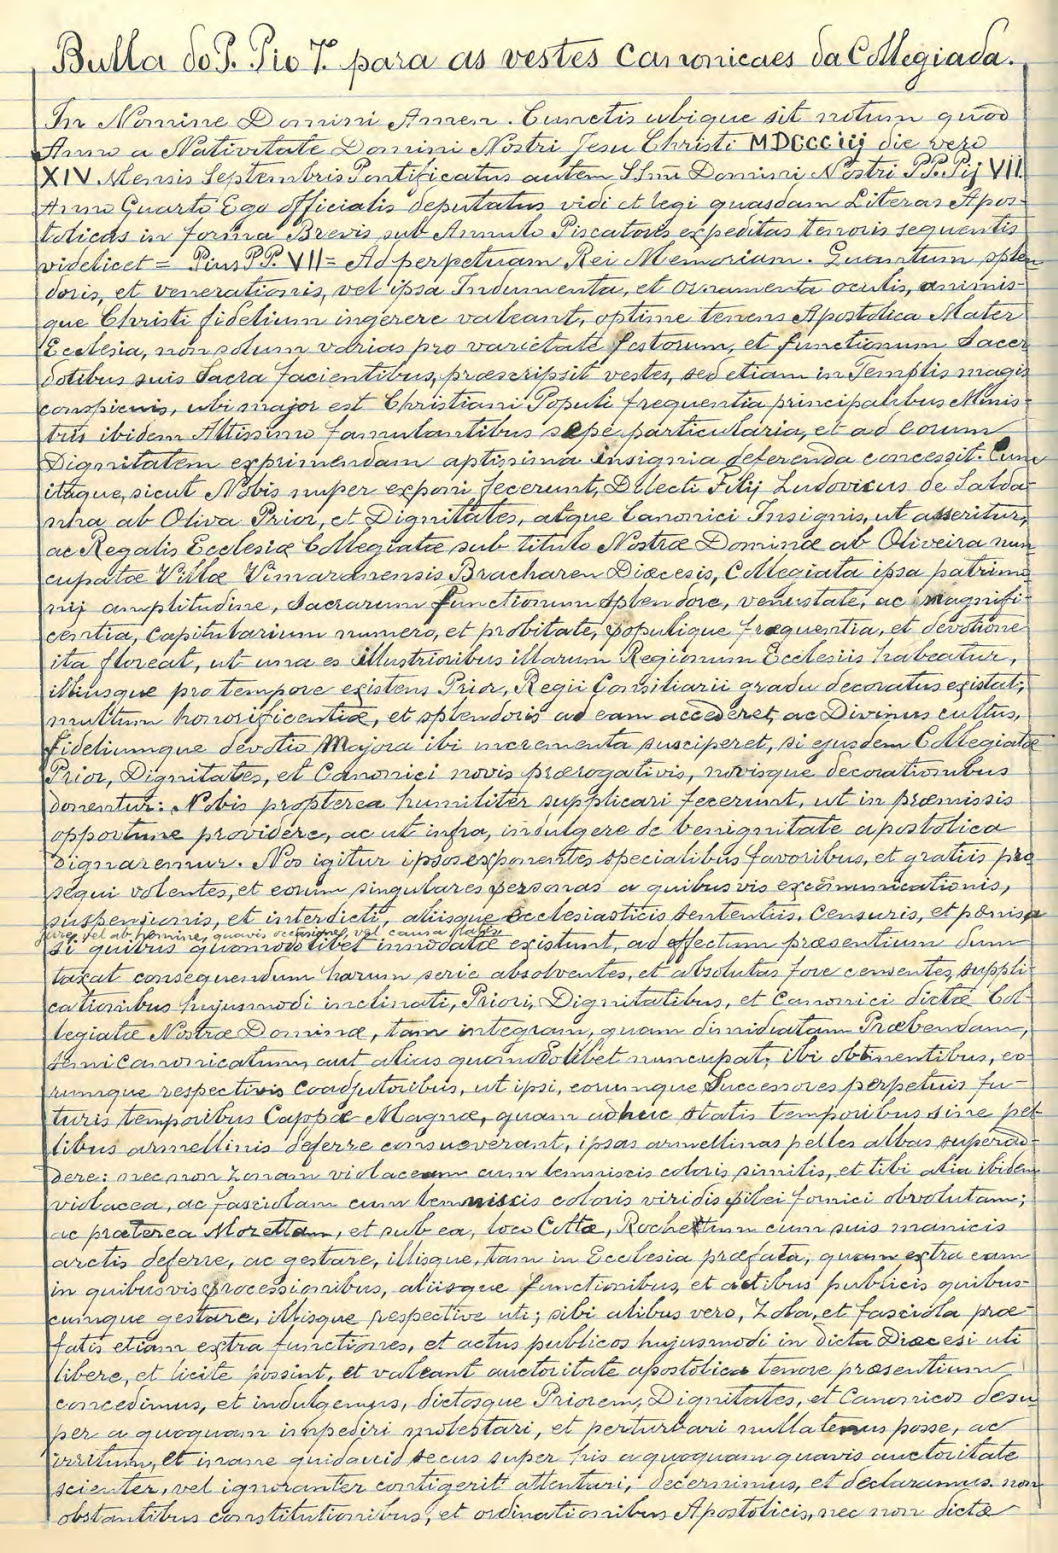 Bulla do P. Pio 7º para as vestes canonicaes da Collegiada.
In Nomine Domini Amen. Cunctis ubique sit notum quod
Anno a Nativitate Domini Nostri Jesu Christi MDCCCiij die vero
XIV Mensis Septembris Pontificatus autem SSmi Domini Nostri PP. Pij VII.
Anno Quarto Ego officialis deputatus vidi et legi quasdam Literas Apos-
tolicas in forma Brevis sub Annulo Piscatoris expeditas tenoris sequentis
videlicet = Pius PP. VII = Ad perpetuam Rei Memoriam. Quantum splen
doris, et venerationis, vel ipsa Indumenta, et ornamenta oculis, animis-
que Christi fidelium ingerere valeant, optime tenens Apostolica Mater
Ecclesia, non solum varias pro varietate festorum, et functionum Sacer
dotibus suis Sacra facientibus, præscripsit vestes, sed etiam in Templis magis
conspicuis, ubi major est Christiani Populi frequentia principalibus Minis-
tris ibidem Altissimo famulantibus sepe particularia, et ad eorum
Dignitatem exprimendam aptissima insignia deferenda concessit. Cum
itaque, sicut Nobis nuper exponi fecerunt, Dilecti Filij Ludovicus de Salda-
nha ab Oliva Prior, et Dignitates, atque Canonici Insignis, ut asseritur,
ac Regalis Ecclesiæ Collegiatæ sub titulo Nostræ Dominæ ab Oliveira nun
cupatæ Villæ Vimaranensis Bracharen Diæcesis, Collegiata ipsa patrimo
nij amplitudine, Sacrarum functionum splendore, venustate, ac magnifi-
centia, capitularium numero, et probitate, populique frequentia, et devotione
ita floreat, ut una es illustrioribus illarum Regionum Ecclesiis habeatur,
illiusque pro tempore existens Prior, Regii Consiliarii gradu decoratus existat;
multum honorificentiæ, et splendoris ad eam accederet, ac Divinus cultus,
fideliumque devotio Majora ibi incrementa susciperet, si ejusdem Collegiatæ
Prior, Dignitates, et Canonici novis prærogativis, novisque decorationibus
donentur: Nobis propterea humiliter supplicari fecerunt, ut in præmissis
opportune providere, ac ut infra, indulgere de benignitate apostolica
dignaremur. Nos igitur ipsos exponentes specialibus favoribus, et gratiis pro
sequi volentes, et eorum singulares personas a quibusvis excõmunicationis,
suspensionis, et interdicti, aliisque ecclesiasticis sententiis, Censuris, et pænis a
jure, vel ab homine, quavis occasione, vel causa latis
si quibus quomodolibet innodatæ existunt, ad effectum præsentium dum
taxat consequendum harum serie absolventes, et absolutas fore censentes, suppli
cationibus hujusmodi inclinati, Priori, Dignitatibus, et Canonici dictæ Col-
legiatæ Nostræ Dominæ, tam integram, quam dimidiatam Præbendam,
semicanonicatum, aut alias quomodolibet nuncupat, ibi obtinentibus, eo
rumque respectivis coadjutoribus, ut ipsi, eorumque Successores perpetuis fu-
turis temporibus Cappæ Magnæ, quam adhuc statis temporibus sine pel
libus armellinis deferre consueverant, ipsas armellinas pelles albas superad-
dere: nec non Zonam violaceam cum lemniscis coloris similis, et tibialia ibidem
violacea, ac fasciolam cum lemniscis coloris viridis pilei fornici obvolutam;
ac præterea Mozettam, et sub ea, loco Cottæ, Rochettum cum suis manicis
arctis deferre, ac gestare, illisque, tam in Ecclesia præfata, quam extra eam
in quibusvis processionibus, aliisque functionibus, et actibus publicis quibus-
cumque gestare, illisque respective uti; sibi alibus vero, Zona, et fasciola præ-
fatis etiam extra functiones, et actus publicos hujusmodi in dicta Diæcesi uti
libere, et licite possint, et valeant auctoritate apostolica tenore præsentium
concedimus, et indulgemus, dictosque Priorem, Dignitates, et Canonicos desu
per a quoquam impediri molestari, et perturbari nullatenus posse, ac
irritum, et inane quidquid secus super his a quoquam quavis auctoritate
scienter, vel ignoranter contigerit attentari, decernimus, et declaramus. non
obstantibus constitutionibus, et ordinationibus Apostolicis, nec non dictæ